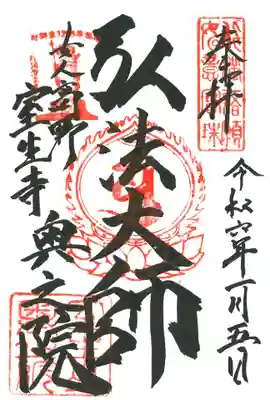 奉拝
令和六年一月五日
弘法大師
女人高野
室生寺
奥之院